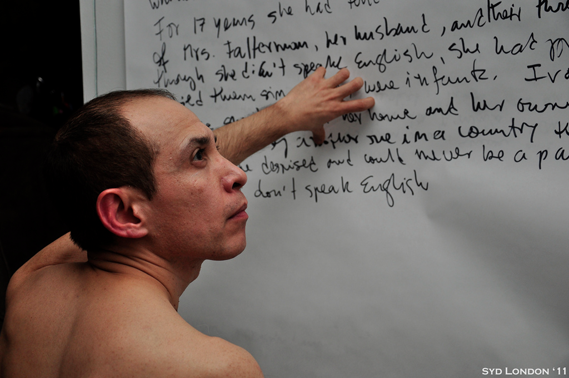 For 17 years she had
of Mrs. Falterman, her husband, and their thre
though she didn't speak English, she had
them sin were infants. I
her home and her own
me in a country th
despised and could never be a pa
don't speak English
SYD LONDON '11